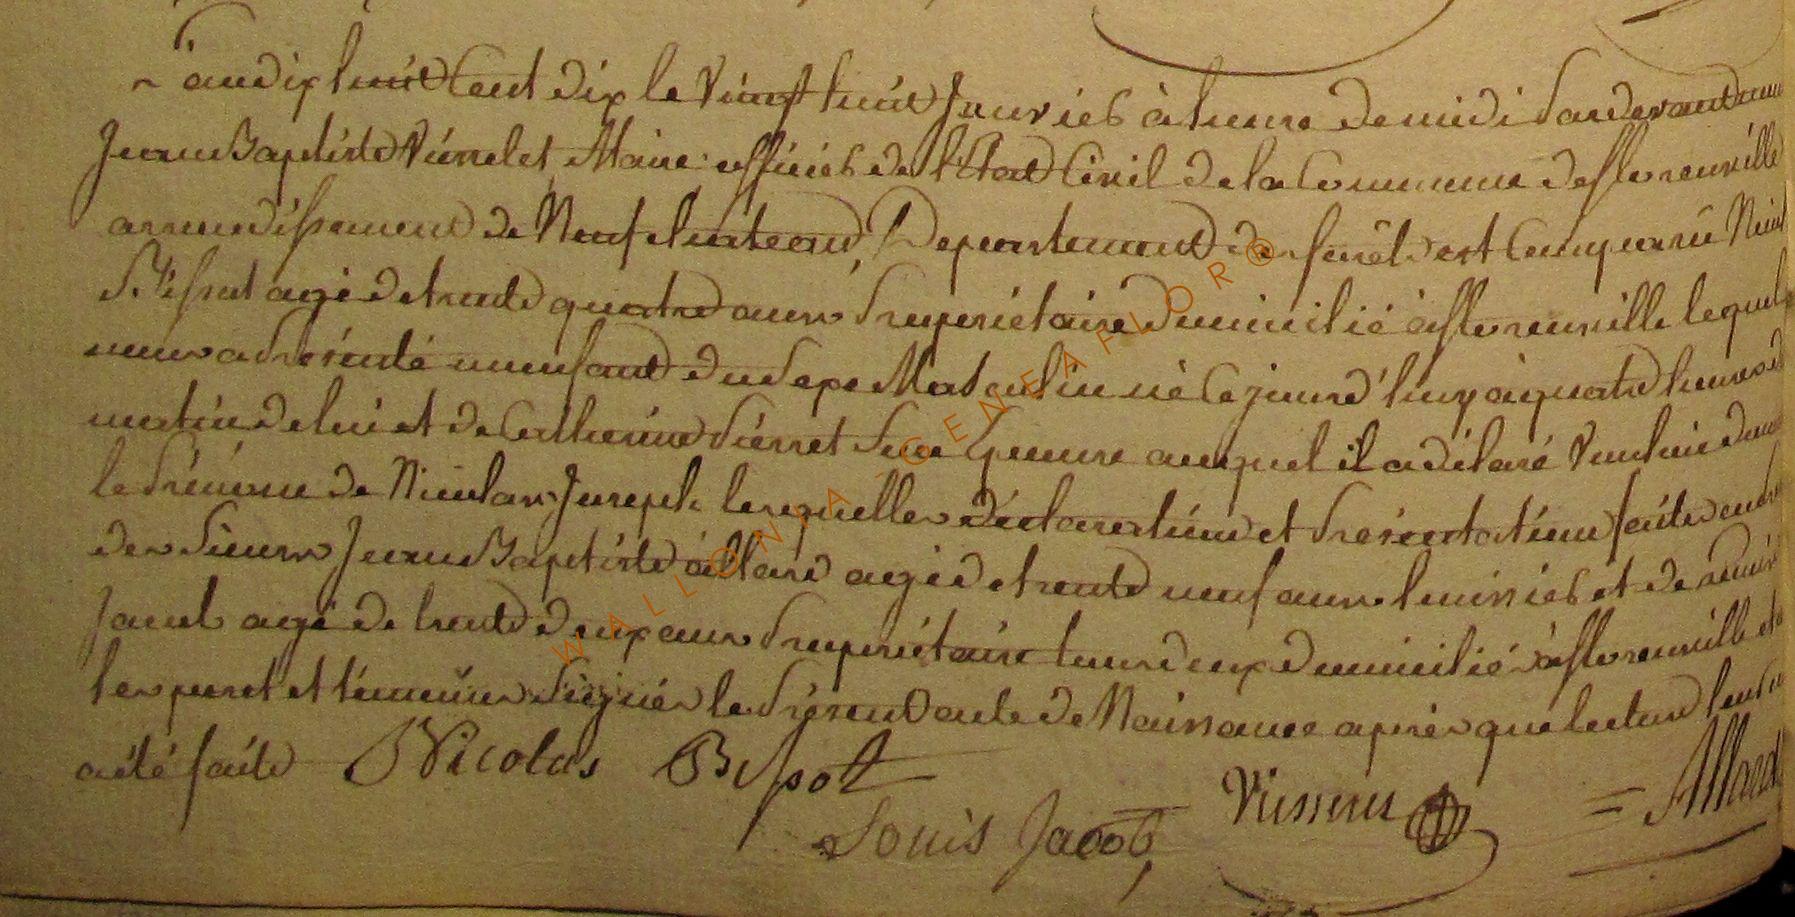 L'an dix huit Cent dix le Vingt huit Janvier à heure de midi Pardevant nous
Jean Baptiste maire officier de l'état Civil de la Commune de florenville
arrondissement de Neufchateau, Departement des forêts est Comparu Nicolas
Bissot agé de trente quatre ans Propriétaire Domicilié à florenville lequel
nous a Présenté un enfant du Sexe Masculin né Ce jourd'huy à quatre heures du
matin de lui et de Catherine Pierret Son Epouse auquel il a déclaré Vouloir donner
le Prénom de Nicolas Joseph lesquelles déclaration et Présentation faites en
des Sieurs Jean Baptiste allard agé de trente neuf ans huissier et de Louis
Jacob agé de trente deux ans Propriétaire tous deux domiciliés à florenville et
les peret et témoins Signés le Présent acte de Naissance après que lecture leur en
a été faite Nicolas Bissot
Louis Jacob
Allard
WALLONIA-GENEAFLOR®